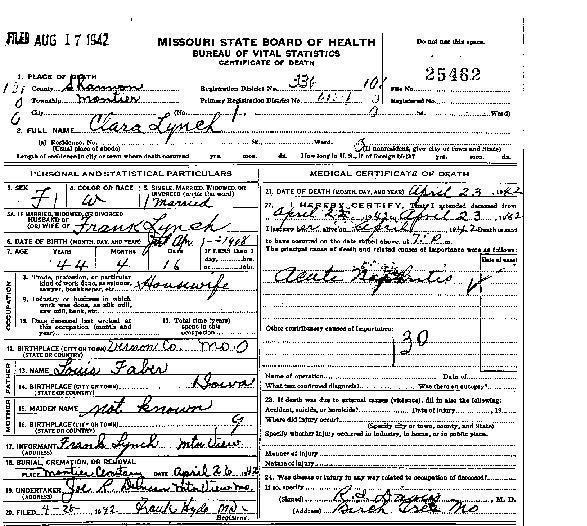 FILED AUG 17 1942
MISSOURI STATE BOARD OF HEALTH
BUREAU OF VITAL STATISTICS
CERTIFICATE OF DEATH
Do not use this space.
25462
1. PLACE OF DEATH
County Shannon Registration District No. 336 File No.
Township Montier Primary Registration District No. Registered No.
City (No. Ward)
2. FULL NAME Clara Lynch
(a) Residence, No. St. Ward.
(Usual place of abode) (If nonresident, give city or town and State)
Length of residence in city or town where death occurred yrs. mos. ds. How long in U.S., if of foreign birth? yrs. mos. ds.
PERSONAL AND STATISTICAL PARTICULARS
3. SEX F
4. COLOR OR RACE W
5. SINGLE, MARRIED, WIDOWED, OR DIVORCED (write the word) Married
5A. IF MARRIED, WIDOWED, OR DIVORCED
HUSBAND OF
(OR) WIFE OF Frank Lynch
6. DATE OF BIRTH (MONTH, DAY, AND YEAR)
7. AGE YEARS 44 MONTHS 4 DAYS 16
If LESS than 1 day, hrs. or min.
OCCUPATION
8. Trade, profession, or particular kind of work done, as spinner, sawyer, bookkeeper, etc. Housewife
9. Industry or business in which work was done, as silk mill, saw mill, bank, etc.
10. Date deceased last worked at this occupation (month and year)
11. Total time (years) spent in this occupation
12. BIRTHPLACE (CITY OR TOWN) Vernon Co. Mo
(STATE OR COUNTRY)
FATHER
13. NAME Louis Faber
14. BIRTHPLACE (CITY OR TOWN) Iowa
(STATE OR COUNTRY)
MOTHER
15. MAIDEN NAME not known
16. BIRTHPLACE (CITY OR TOWN) 9
(STATE OR COUNTRY)
17. INFORMANT Frank Lynch Mtn View
(ADDRESS)
18. BURIAL, CREMATION, OR REMOVAL
PLACE Montier Cemetary DATE April 26 1942
19. UNDERTAKER Joe R. Mtn View Mo.
(ADDRESS)
20. FILED 4-28- 1942 Frank Hyde MD
Registrar.
MEDICAL CERTIFICATE OF DEATH
21. DATE OF DEATH (MONTH, DAY, AND YEAR) April 23 1942
22. I HEREBY CERTIFY, That I attended deceased from
April 1942 April 23 1942
I last saw alive on April 1942 Death is said
to have occurred on the date stated above, at P.m.
The principal cause of death and related causes of importance were as follows:
Date of onset
Acute Nephritis
Other contributory causes of importance:
130
Name of operation Date of
What test confirmed diagnosis? Was there an autopsy?
23. If death was due to external causes (violence), fill in also the following:
Accident, suicide, or homicide? Date of injury 19
Where did injury occur?
(Specify city or town, county, and State)
Specify whether injury occurred in industry, in home, or in public place.
Manner of injury
Nature of injury
24. Was disease or injury in any way related to occupation of deceased?
If so, specify
(Signed) R.S. M. D.
(Address) Birch Tree Mo